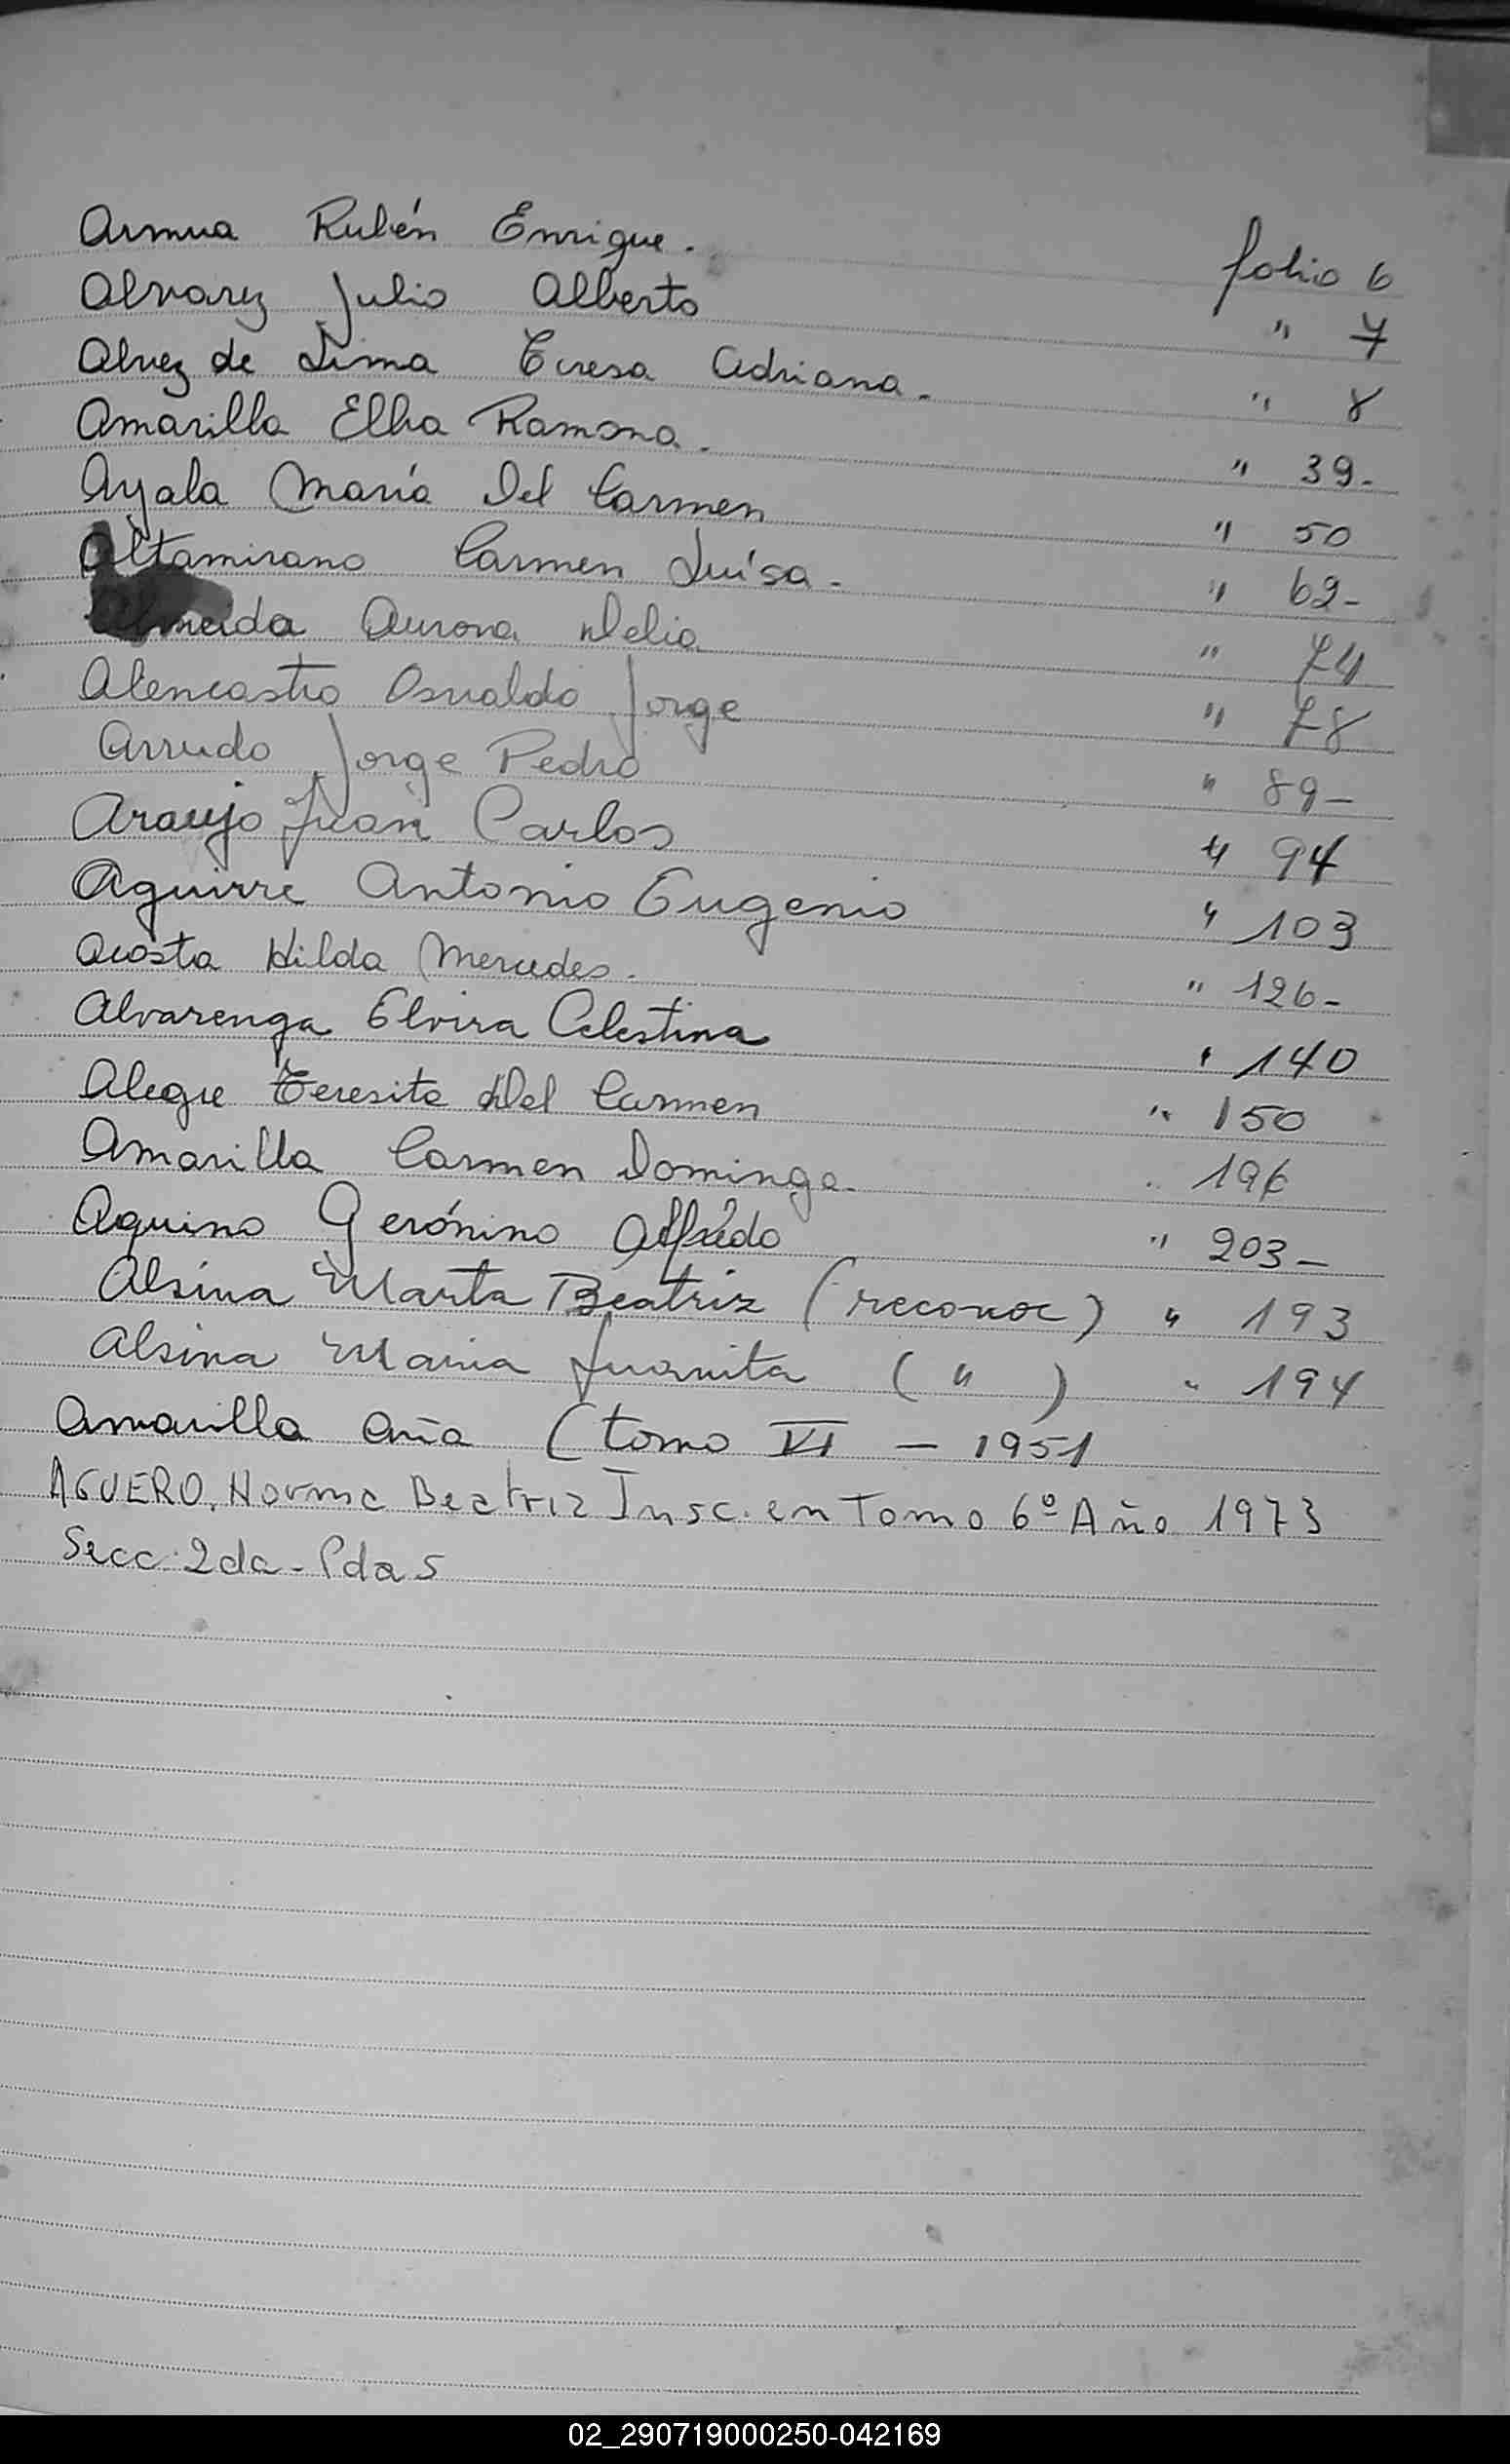 Armua Rubén Enrique. folio 6
Alvarez Julio Alberto " 7
Alvez de Lima Teresa Adriana. " 8
Amarilla Elba Ramona. " 39-
Ayala María Del Carmen " 50
Altamirano Carmen Luísa. " 62-
Almeida Aurora Delia " 74
Alencastro Osvaldo Jorge " 78
Arrudo Jorge Pedro " 89-
Araujo Juan Carlos " 94
Aguirre Antonio Eugenio " 103
Acosta Hilda Mercedes. " 126-
Alvarenga Elvira Celestina " 140
Alegre Teresita Del Carmen " 150
Amarilla Carmen Dominga. " 196
Aquino Gerónino Alfredo " 203-
Alsina Marta Beatriz (reconoc) " 193
Alsina Maria Juanita ( " ) " 194
Amarilla Ana (tomo VI - 1951
AGUERO, Norma Beatriz Insc. en Tomo 6º Año 1973
Secc: 2da - Pda 5
02_290719000250-042169